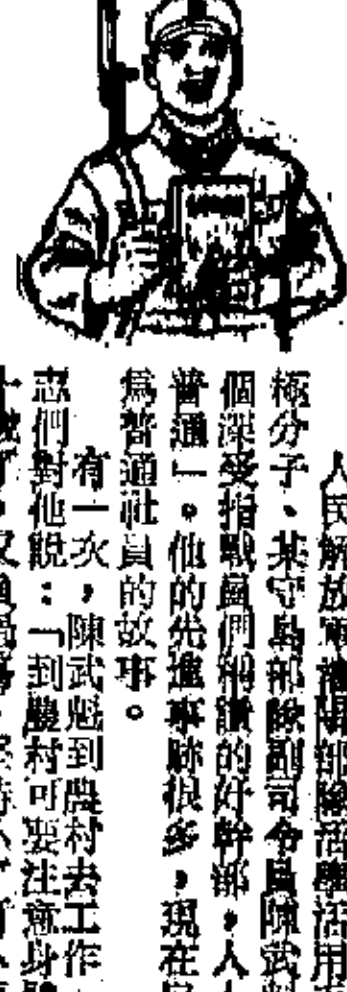 人民解放軍瀋陽部隊活學活用
極分子、某守島部隊副司令員陳武魁
個深受指戰員們稱讚的好幹部，人人
普通」。他的先進事跡很多，現在
爲普通社員的故事。
有一次，陳武魁到農村去工作
志們對他說：「到農村可要注意身體